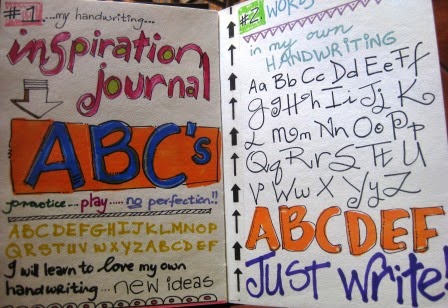 #1 ...my handwriting...
inspiration
journal
ABC's
practice... play..... no perfection!!
ABCDEFGHIJKLMNOP
QRSTUV WXYZABCDEF
I will learn to love my own
handwriting... new ideas
#2. WORDS
in my own
HANDWRITING
Aa Bb Cc Dd Ee Ff
Gg Hh Ii Jj K
L Mm Nn Oo Pp
Qq Rr S Tt U
V Ww X Yy Z
ABCDEF
Just write!